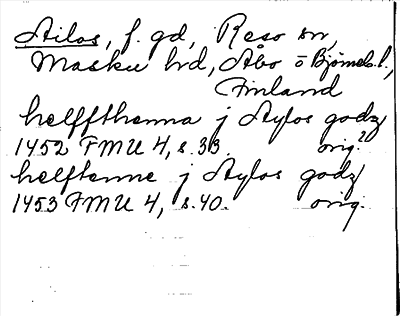 Ailos, f. gd, Reso sn,
Masku hd, Åbo o Björneb. l.,
Finland
helffthenna j Aylos godz
1452 FMU 4, s. 33. orig.?
helftenne j Aylos godz
1453 FMU 4, s. 40. orig.